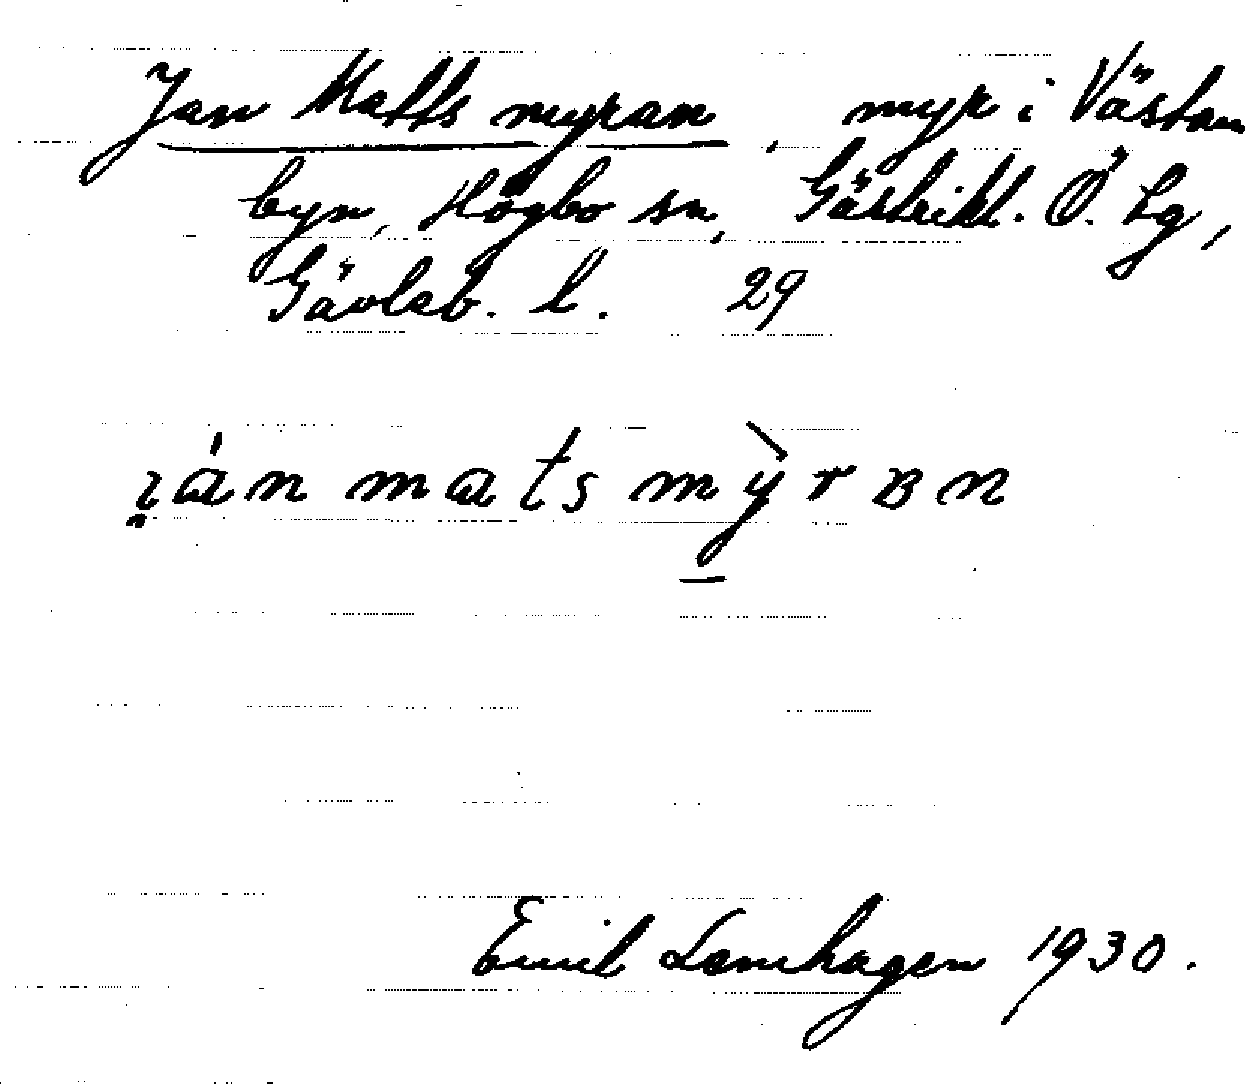 Jan Matts myran, myr i Västan
byn, Högbo sn, Gästrikl. Ö. Lg,
Gävleb. l. 29
ɪ̨án mats mỳrɐn
Emil Lamhagen 1930.